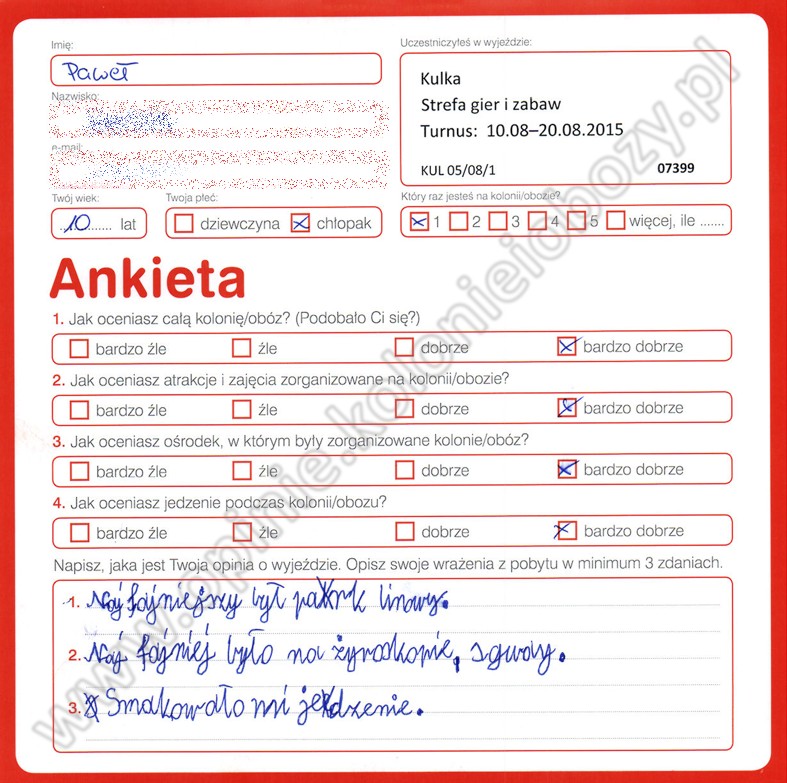 Imię:
Paweł
Uczestniczyłeś w wyjeździe:
Kulka
Strefa gier i zabaw
Turnus: 10.08–20.08.2015
KUL 05/08/1 07399
Nazwisko:
e-mail:
Twój wiek:
10 lat
Twoja płeć:
dziewczyna chłopak
Który raz jesteś na kolonii/obozie?
1 2 3 4 5 więcej, ile .......
Ankieta
1. Jak oceniasz całą kolonię/obóz? (Podobało Ci się?)
bardzo źle źle dobrze bardzo dobrze
2. Jak oceniasz atrakcje i zajęcia zorganizowane na kolonii/obozie?
bardzo źle źle dobrze bardzo dobrze
3. Jak oceniasz ośrodek, w którym były zorganizowane kolonie/obóz?
bardzo źle źle dobrze bardzo dobrze
4. Jak oceniasz jedzenie podczas kolonii/obozu?
bardzo źle źle dobrze bardzo dobrze
Napisz, jaka jest Twoja opinia o wyjeździe. Opisz swoje wrażenia z pobytu w minimum 3 zdaniach.
1. Naj fajniejszy był park linowy.
2. Naj fajniej było na żyroskopie, sgway.
3. Smakowało mi jedzenie.
www.opinie.kolonieiobozy.pl